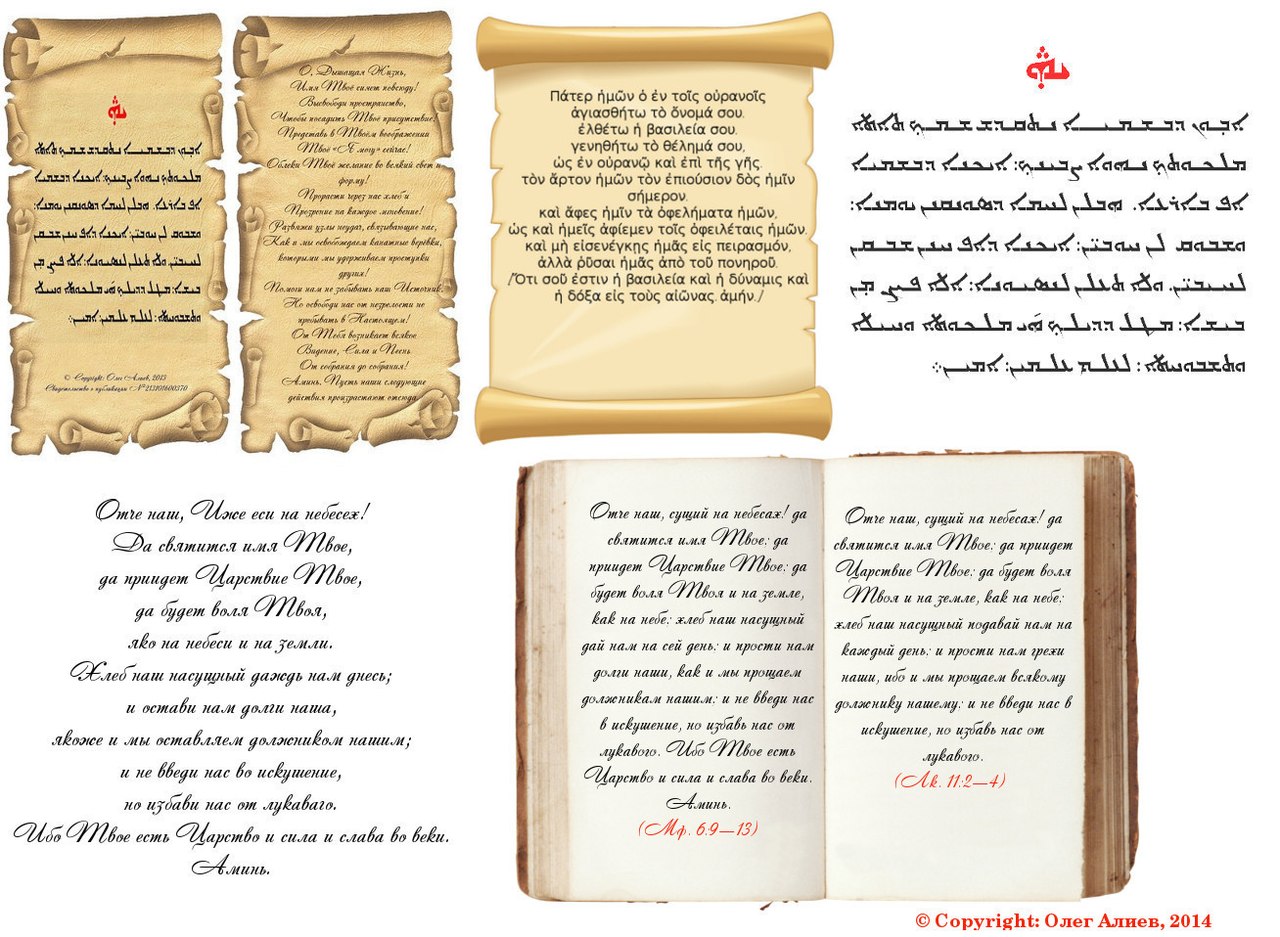 ܐܒܘܢ ܕܒܫܡܝܐ ܢܬܩܕܫ ܫܡܟ ܬܐܬܐ
ܡܠܟܘܬܟ ܢܗܘܐ ܨܒܝܢܟ܆ ܐܝܟܢܐ ܕܒܫܡܝܐ
ܐܦ ܒܐܪܥܐ. ܗܒܠܢ ܠܚܡܐ ܕܣܘܢܩܢܢ ܝܘܡܢܐ܆
ܘܫܒܘܩ ܠܢ ܚܘܒܝ̈ܢ܆ ܐܝܟܢܐ ܕܐܦ ܚܢܢ ܫܒܩܢ
ܠܚܝܒܝ̈ܢ. ܘܠܐ ܬܥܠܢ ܠܢܣܝܘܢܐ܆ ܐܠܐ ܦܨܢ ܡܢ
ܒܝܫܐ܆ ܡܛܠ ܕܕܝܠܟ ܗܝ ܡܠܟܘܬܐ ܘܚܝܠܐ
ܘܬܫܒܘܚܬܐ܆ ܠܥܠܡ ܥܠܡܝܢ܆ ܐܡܝܢ܀
© Copyright: Олег Алиев, 2013
Свидетельство о публикации №213101600370
О, Дышащая Жизнь,
Имя Твоё сияет повсюду!
Высвободи пространство,
Чтобы посадить Твое присутствие!
Представь в Твоём воображении
Твоё «Я могу» сейчас!
Облеки Твоё желание во всякий свет и
форму!
Прорасти через нас хлеб и
Прозрение на каждое мгновение!
Развяжи узлы неудач, связывающие нас,
Как и мы освобождаем канатные верёвки,
которыми мы удерживаем проступки
других!
Помоги нам не забывать наш Источник.
Но освободи нас от незрелости не
пребывать в Настоящем!
От Тебя возникает всякое
Видение, Сила и Песнь
От собрания до собрания!
Аминь. Пусть наши следующие
действия произрастают отсюда.
Πάτερ ἡμῶν ὁ ἐν τοῖς οὐρανοῖς
ἁγιασθήτω τὸ ὄνομά σου.
ἐλθέτω ἡ βασιλεία σου.
γενηθήτω τὸ θέλημά σου,
ὡς ἐν οὐρανῷ καὶ ἐπὶ τῆς γῆς.
τὸν ἄρτον ἡμῶν τὸν ἐπιούσιον δὸς ἡμῖν
σήμερον.
καὶ ἄφες ἡμῖν τὰ ὀφελήματα ἡμῶν,
ὡς καὶ ἡμεῖς ἀφίεμεν τοῖς ὀφειλέταις ἡμῶν.
καὶ μὴ εἰσενέγκῃς ἡμᾶς εἰς πειρασμόν,
ἀλλὰ ῥῦσαι ἡμᾶς ἀπὸ τοῦ πονηροῦ.
/Ὅτι σοῦ ἐστιν ἡ βασιλεία καὶ ἡ δύναμις καὶ
ἡ δόξα εἰς τοὺς αἰῶνας. ἀμήν./
ܐܒܘܢ ܕܒܫܡܝܐ ܢܬܩܕܫ ܫܡܟ ܬܐܬܐ
ܡܠܟܘܬܟ ܢܗܘܐ ܨܒܝܢܟ܆ ܐܝܟܢܐ ܕܒܫܡܝܐ
ܐܦ ܒܐܪܥܐ. ܗܒܠܢ ܠܚܡܐ ܕܣܘܢܩܢܢ ܝܘܡܢܐ܆
ܘܫܒܘܩ ܠܢ ܚܘܒܝ̈ܢ܆ ܐܝܟܢܐ ܕܐܦ ܚܢܢ ܫܒܩܢ
ܠܚܝܒܝ̈ܢ. ܘܠܐ ܬܥܠܢ ܠܢܣܝܘܢܐ܆ ܐܠܐ ܦܨܢ ܡܢ
ܒܝܫܐ܆ ܡܛܠ ܕܕܝܠܟ ܗܝ ܡܠܟܘܬܐ ܘܚܝܠܐ
ܘܬܫܒܘܚܬܐ܆ ܠܥܠܡ ܥܠܡܝܢ܆ ܐܡܝܢ܀
Отче наш, Иже еси на небесех!
Да святится имя Твое,
да приидет Царствие Твое,
да будет воля Твоя,
яко на небеси и на земли.
Хлеб наш насущный даждь нам днесь;
и остави нам долги наша,
якоже и мы оставляем должником нашим;
и не введи нас во искушение,
но избави нас от лукаваго.
Ибо Твое есть Царство и сила и слава во веки.
Аминь.
Отче наш, сущий на небесах! да
святится имя Твое; да
приидет Царствие Твое; да
будет воля Твоя и на земле,
как на небе; хлеб наш насущный
дай нам на сей день; и прости нам
долги наши, как и мы прощаем
должникам нашим; и не введи нас
в искушение, но избавь нас от
лукавого. Ибо Твое есть
Царство и сила и слава во веки.
Аминь.
(Мф. 6:9—13)
Отче наш, сущий на небесах! да
святится имя Твое; да приидет
Царствие Твое; да будет воля
Твоя и на земле, как на небе;
хлеб наш насущный подавай нам на
каждый день; и прости нам грехи
наши, ибо и мы прощаем всякому
должнику нашему; и не введи нас в
искушение, но избавь нас от
лукавого.
(Лк. 11:2—4)
© Copyright: Олег Алиев, 2014